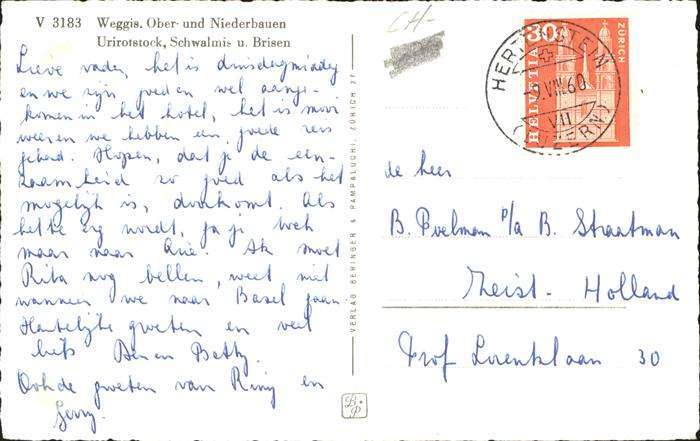 V 3183 Weggis. Ober- und Niederbauen
Urirotstock, Schwalmis u. Brisen
Lieve vader, het is dinsdagmiddag
en we zijn goed en wel aange-
komen in het hotel, het is mooi
weer en we hebben een goede reis
gehad. Hopen, dat je de een-
zaamheid zo goed als het
mogelijk is, doorkomt. Als
het te erg wordt, ga je toch
maar naar Arie. Ik moet
Rita nog bellen, weet niet
wanneer we naar Basel gaan.
Hartelijke groeten en veel
liefs Ben en Betty.
Ook de groeten van Riny en
Gerry.
VERLAG BERINGER & PAMPALUCHI, ZÜRICH 27
B.P
CH-
30
HELVETIA
ZÜRICH
HERTENSTEIN
9.VIII.60
VII
(LUZERN)
de heer
B. Poelman p/a B. Straatman
Zeist - Holland
Prof Lorentzlaan 30